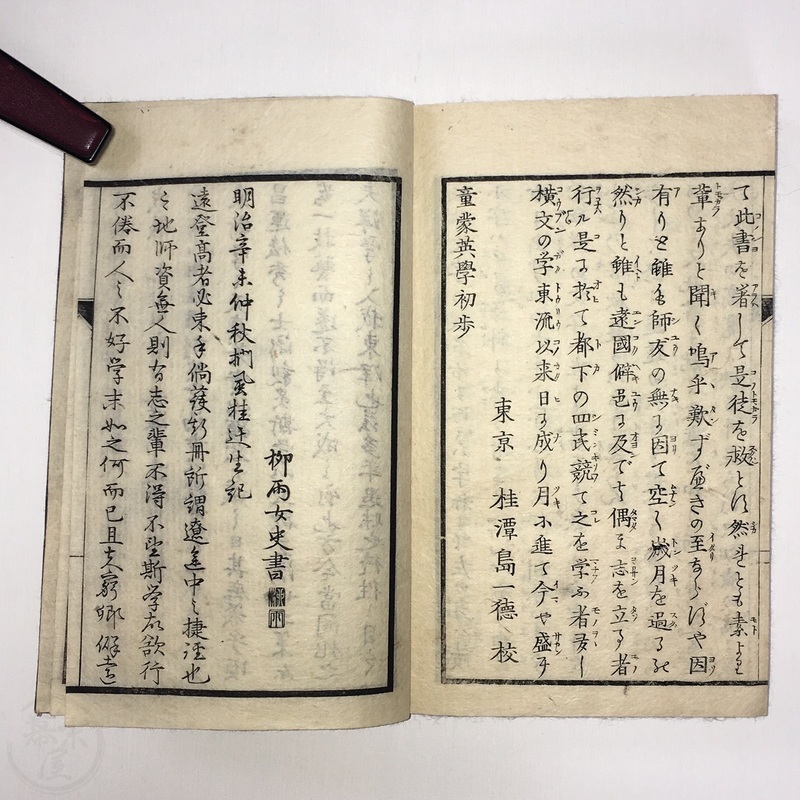 不倦而人之不好学末如之何而已且夫窮郷僻遠
之地師資無人則有志之輩不得不望斯学故欲行
遠登高者必東手倘獲斯冊所謂遼遠中之捷徑也
明治辛未仲秋 桂 生記
柳雨女史書
童蒙英學初歩
東京 桂潭島一德 校
横文の学東流以来日に成り月に進て今や盛ナ
行ル是に於て都下の四民競て之を学ふ者多し
然りと雖も遠國僻邑に及でハ偶ま志を立る者
有りと雖も師友の無に因て空く歳月を過るの
輩ありと聞く嗚乎歎ずべきの至ならずや因
て此書を著して是徒を救とす然れとも素より